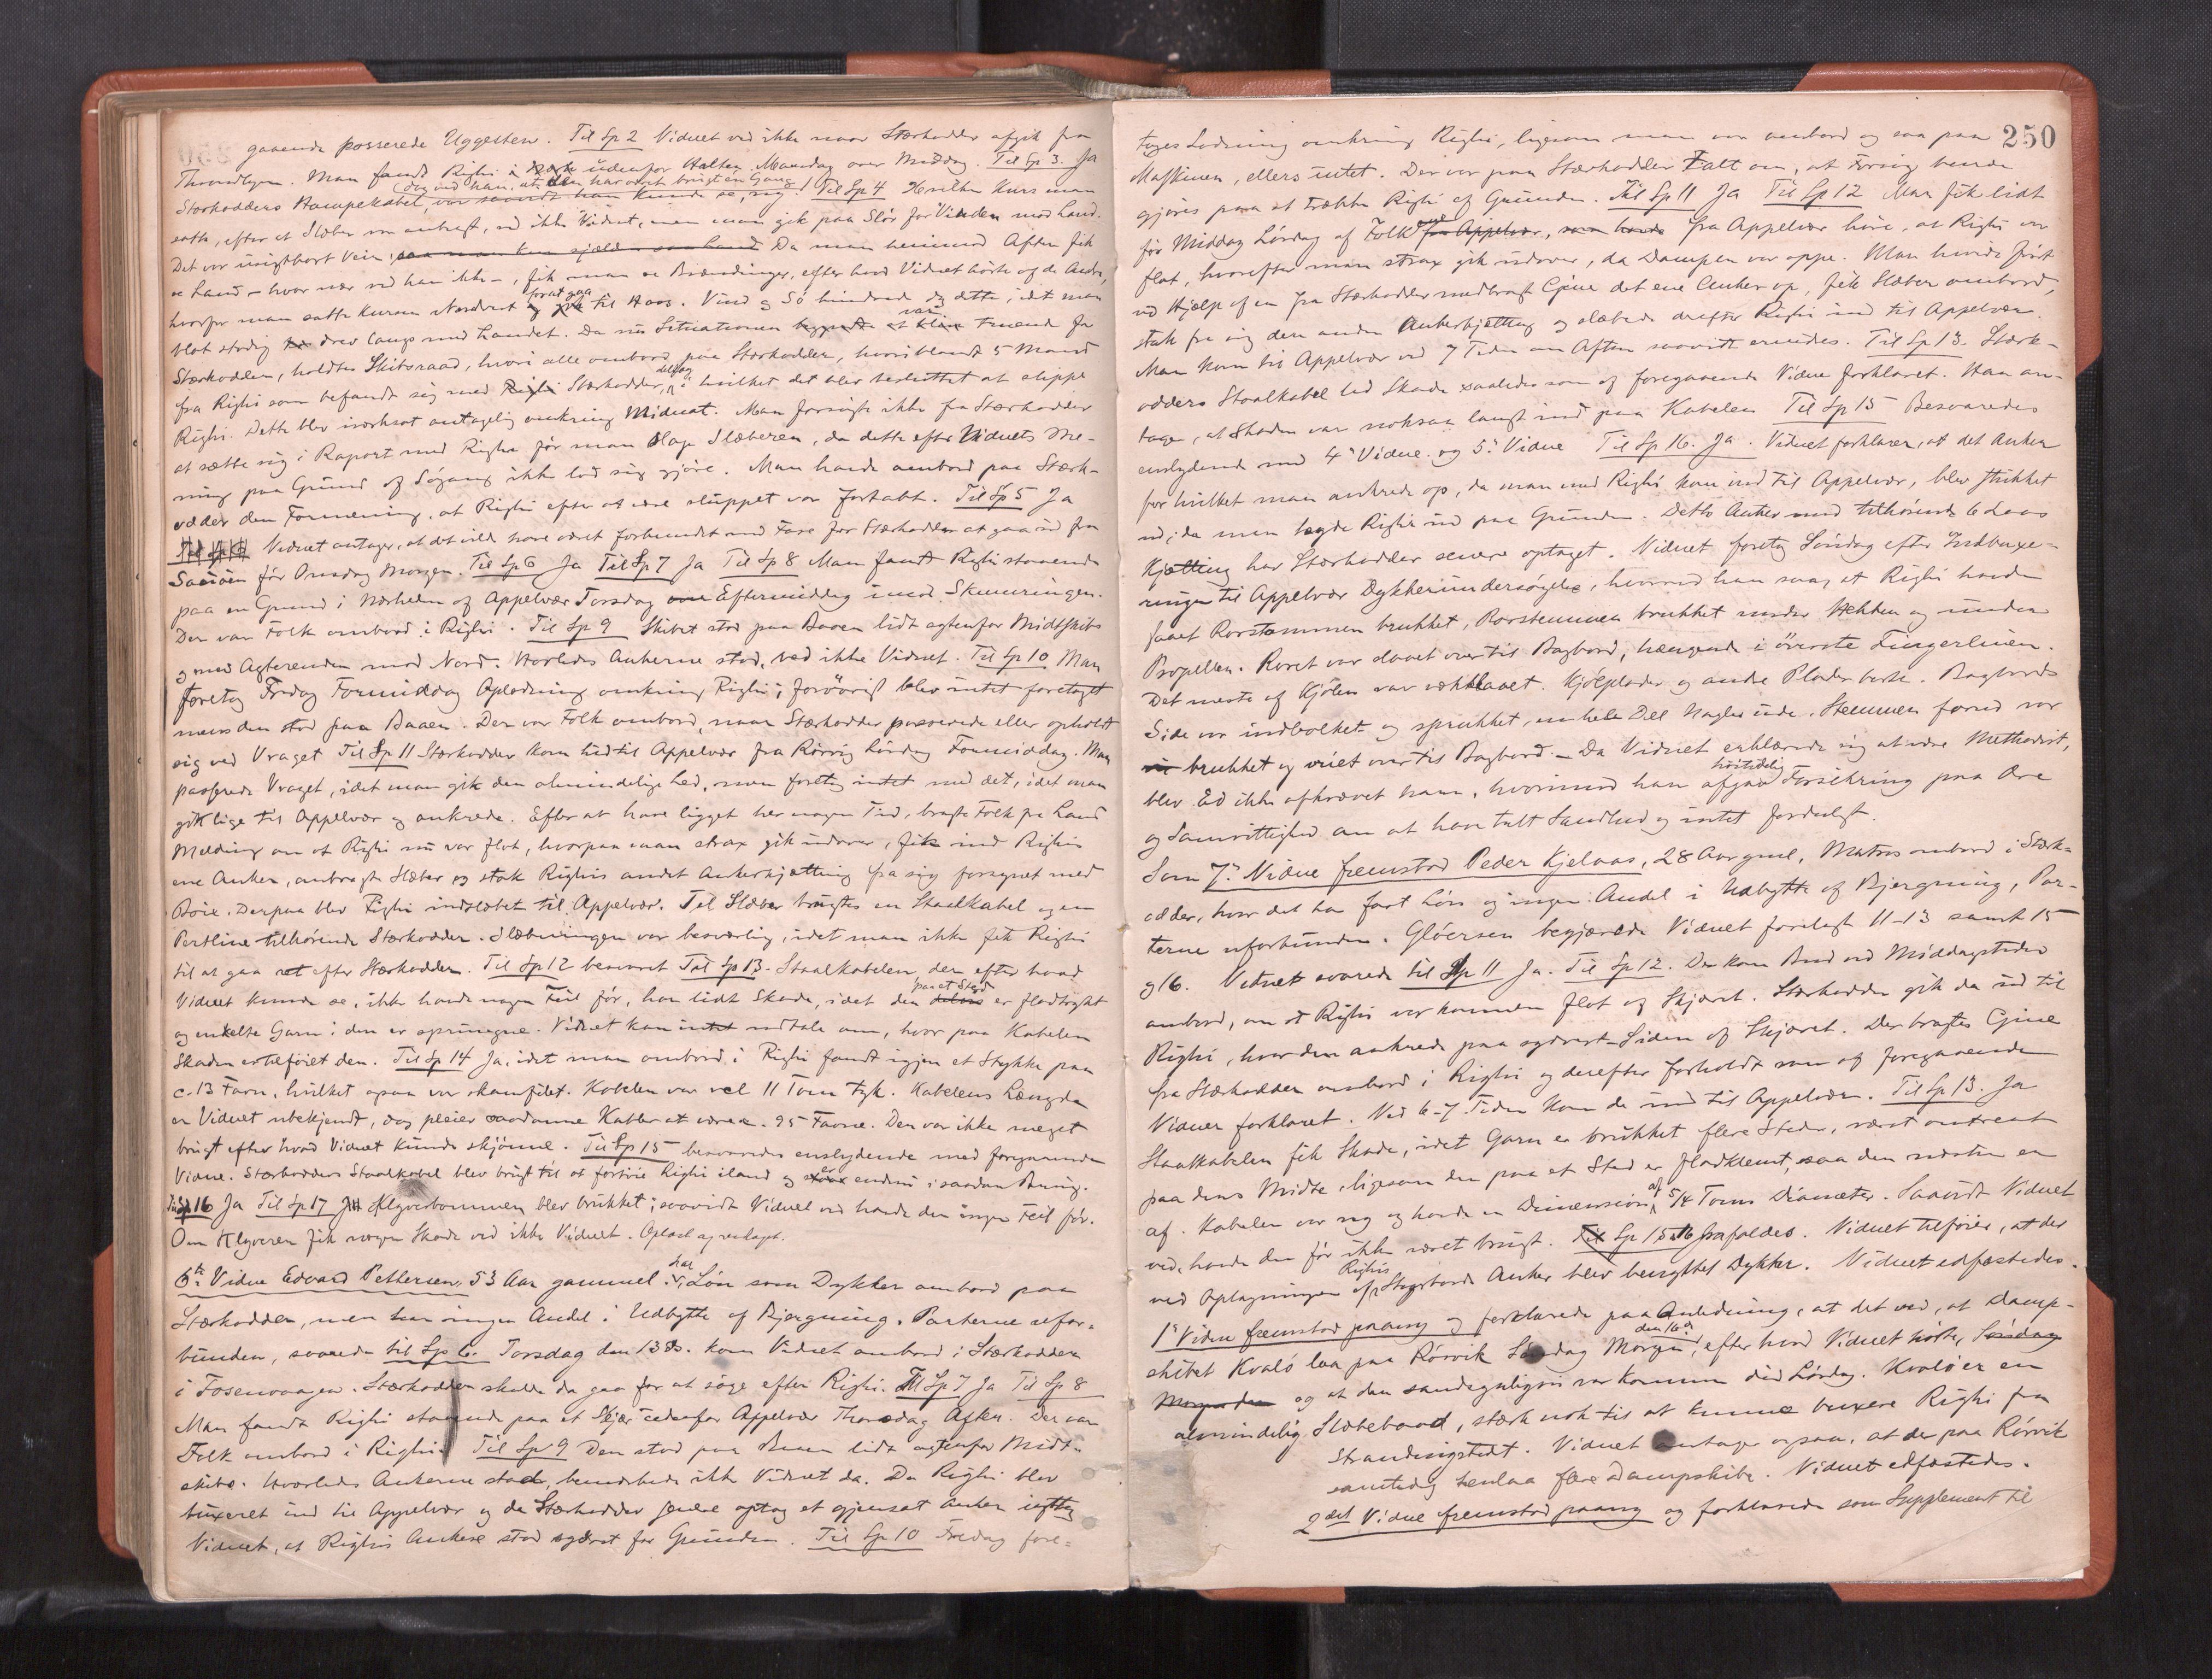 gaaende passerede Uggesten. Til Sp 2 Vidnet ved ikke naar Stærkodder afgik fra
Throndhjem. Man fandt Righi udenfor Halten Mandag over Middag. Til Sp 3. Ja
dog ved han, at den har været brugt en Gang
Stærkodders Hampekabel, var saavidt han kunde se, ny. Til Sp 4 Hvilken Kurs man
satte, efter at Slæber var anbragt, ved ikke Vidnet, men man gik paa Slør for Vinden mod Land.
Det var usigtbart Veir, Da man henimod Aften fik
se Land – hvor nær ved han ikke –, fik man se Brændinger, efter hvad Vidnet hørte af de Andre,
hvorfor man satte Kursen Nordvest forat gaa til Havs. Vind og Sö hindrede dog dette, idet man
blot stadig drev langs med Landet. Da nu Situationen var truende for
Stærkodder, holdtes Skibsraad, hvori alle ombord paa Stærkodder, hvoriblandt 5 Mand
fra Righi som befandt sig med Stærkodder, deltog i hvilket det blev besluttet at slippe
Righi. Dette blev iværksat antagelig omkring Midnat. Man forsøgte ikke fra Stærkodder
at sætte sig i Raport med Righi før man slap Slæberen, da dette efter Vidnets Me-
ning paa Grund af Søgang ikke lod sig gjøre. Man havde ombord paa Stærk-
odder den Formening, at Righi efter at være sluppet var fortabt. Til Sp 5 Ja
Vidnet antager, at det vilde have været forbundet med Fare for Stærkodder at gaa ud fra
før Onsdag Morgen. Til Sp 6 Ja Til Sp 7 Ja Til Sp 8 Man fandt Righi staaende
paa en Grund i Nærheden af Appelvær Torsdag Eftermiddag imod Skumringen.
Der var Folk ombord i Righi. Til Sp 9 Skibet stod paa Baaen lidt agtenfor Midtskibs
og med Agterenden mod Nord. Hvorledes Ankerne stod, ved ikke Vidnet. Til Sp 10 Man
foretog Fredag Formiddag Oplodning omkring Righi; forøvrigt blev intet foretaget
mens den stod paa Baaen. Der var Folk ombord, naar Stærkodder passerede eller opholdt
sig ved Vraget Til Sp 11 Stærkodder kom hid til Appelvær fra Rørvig Lördag Formiddag. Man
passerede Vraget, idet man gik den almindelige Led, men foretog intet med det, idet man
gik lige til Appelvær og ankrede. Efter at have ligget her nogen Tid, bragte Folk fra Land
Melding om at Righi nu var flot, hvorpaa man strax gik udover, fik ind Righis
ene Anker, anbragte Slæber og stak Righis andet Ankerkjætting fra sig forsynet med
Böie. Derpaa blev Righi indslæbet til Appelvær. Til Slæber brugtes en Staalkabel og en
Pertline tilhørende Stærkodder. Slæbningen var besværlig, idet man ikke fik Righi
til at gaa ret efter Stærkodder. Til Sp 12 besvaret Til Sp 13. Staalkabelen, der efter hvad
Vidnet kunde se, ikke havde nogen Feil før, har lidt Skade, idet den paa et Sted er fladtrykt
og enkelte Garn i den er sprungne. Vidnet kan intet udtale om, hvor paa Kabelen
Skaden er tilføiet den. Til Sp 14 Ja, idet man ombord i Righi fandt igjen et Stykke paa
c. 13 Favn, hvilket ogsaa var skamfilet. Kabelen var vel 11 Tom tyk. Kabelens Længde
er Vidnet ubekjendt, dog pleier saadanne Kabler at være c. 95 Favne. Den var ikke meget
brugt efter hvad Vidnet kunde skjønne. Til Sp 15 besvaredes enslydende med foregaaende
Vidne. Stærkodders Staalkabel blev brugt til at fortøie Righi iland og er endnu i saadan Brug.
Til Sp 16 Ja Til Sp 17 Klyverbommen blev brukket; saavidt Vidnet ved havde den ingen Feil før.
Om Klyveren fik nogen Skade ved ikke Vidnet. Oplæst og vedtaget.
6te Vidne Edvard Pettersen, 53 Aar gammel, har Løn som Dykker ombord paa
Stærkodder, men har ingen Andel i Udbytte af Bjergning. Parterne ufor-
bunden, svarede til Sp 6. Torsdag den 13de kom Vidnet ombord i Stærkodder
i Fosenvaagen. Stærkodder skulde da gaa for at søge efter Righi. Til Sp 7 Ja Til Sp 8
Man fandt Righi staaende paa et Skjær udenfor Appelvær Thorsdag Aften. Der var
Folk ombord i Righi. Til Sp 9 Den stod paa Baaen lidt agtenfor Midt-
skibs. Hvorledes Ankerne stod, bemærkede ikke Vidnet da. Da Righi blev
buxeret ind til Appelvær og da Stærkodder senere optog et gjensat Anker iagttog
Vidnet, at Righis Ankere stod agterst for Grunden. Til Sp 10 Fredag fore-
250
toges Lodning omkring Righi, ligesom man var ombord og saa paa
Maskinen, ellers intet. Der var paa Stærkodder Talt om, at Forsøg burde
gjøres paa at trække Righi af Grunden. Til Sp 11 Ja Til Sp 12 Man fik lidt
før Middag Lördag af Folk fra Appelvær høre, at Righi var
flot, hvorefter man strax gik udover, da Dampen var oppe. Man hivde først
ved Hjælp af en fra Stærkodder medbragt Gjine det ene Anker op, fik Slæber ombord,
stak fra sig den anden Ankerkjætting og slæbede derefter Righi ind til Appelvær.
Man kom til Appelvær ved 7 Tiden om Aften saavidt erindres. Til Sp 13. Stærk-
odders Staalkabel led Skade saaledes som af foregaaende Vidne forklaret. Han an-
tager, at Skaden var noksaa langt ind paa Kabelen Til Sp 15 Besvaredes
enslydende med 4de Vidne og 5te Vidne Til Sp 16. Ja. Vidnet forklarer, at det Anker
for hvilket man ankrede op, da man med Righi kom ind til Appelvær, blev stukket
ud, da man lagde Righi ind paa Grunden. Dette Anker med tilhørende 6 Laas
Kjætting har Stærkodder senere optaget. Vidnet foretog Søndag efter Indbuxe-
ringen til Appelvær Dykkerundersøgelse, hvorved han saa, at Righi havde
faaet Rorstammen brukket, Rorstevnen brukket under Hekken og under
Propellen. Roret var slaaet over til Bagbord, hængende i øverste Fingerlinen.
Det meste af Kjølen var vækslaaet. Kjølplader og andre Plader borte. Bagbords
Side var indbulket og sprukket, en hele Del Nagler ude. Stevnen forud var
brukket og vriet over til Bagbord. – Da Vidnet erklærede sig at være Methodist,
blev Ed ikke afkrævet ham, hvorimod han afgav höitidelig Forsikring paa Ære
og Samvittighed om at have talt Sandhed og intet fordulgt.
Som 7de Vidne fremstod Peder Kjelaas, 28 Aar gml, Matros ombord i Stærk-
odder, hvor det har fast Løn og ingen Andel i Udbytte af Bjergning, Par-
terne uforbunden. Glöersen begjærede Vidnet forelagt 11–13 samt 15
og 16. Vidnet svarede til Sp 11 Ja. Til Sp 12. Der kom Bud ved Middagstider
ombord, om at Righi var kommen flot af Skjæret. Stærkodder gik da ud til
Righi, hvor den ankrede paa agterst Siden af Skjæret. Der bragtes Gjine
fra Stærkodder ombord i Righi og derefter forholdt som af foregaaende
Vidner forklaret. Ved 6-7 Tiden kom de ind til Appelvær. Til Sp 13. Ja
Staalkabelen fik Skade, idet Garn er brukket flere Steder, værst omtrent
paa dens Midte, ligesom den paa et Sted er fladklemt, saa den næsten er
af. Kabelen var ny og havde en Dimension af 5/4 Toms Diameter. Saavidt Vidnet
ved, havde den før ikke været brugt. Til Sp 15 & 16 frafaldes. Vidnet tilføier, at der
ved Optagningen af Righis Styrbords Anker blev benyttet Dykker. Vidnet edfæstedes.
1ste Vidne fremstod paany og forklarede paa Anledning, at det ved, at Damp-
skibet Kvalö laa paa Rörvik Søndag Morgen den 16de, efter hvad Vidnet hørte,
og at den sandsynligvis var kommen did Lördag. Kvalö er en
almindelig Slæbebaad, stærk nok til at kunne buxere Righi fra
Strandingstedet. Vidnet antager ogsaa, at der paa Rörvik
samtidig henlaa flere Dampskibe. Vidnet edfæstedes.
2det Vidne fremstod paany og forklarede som Supplement til